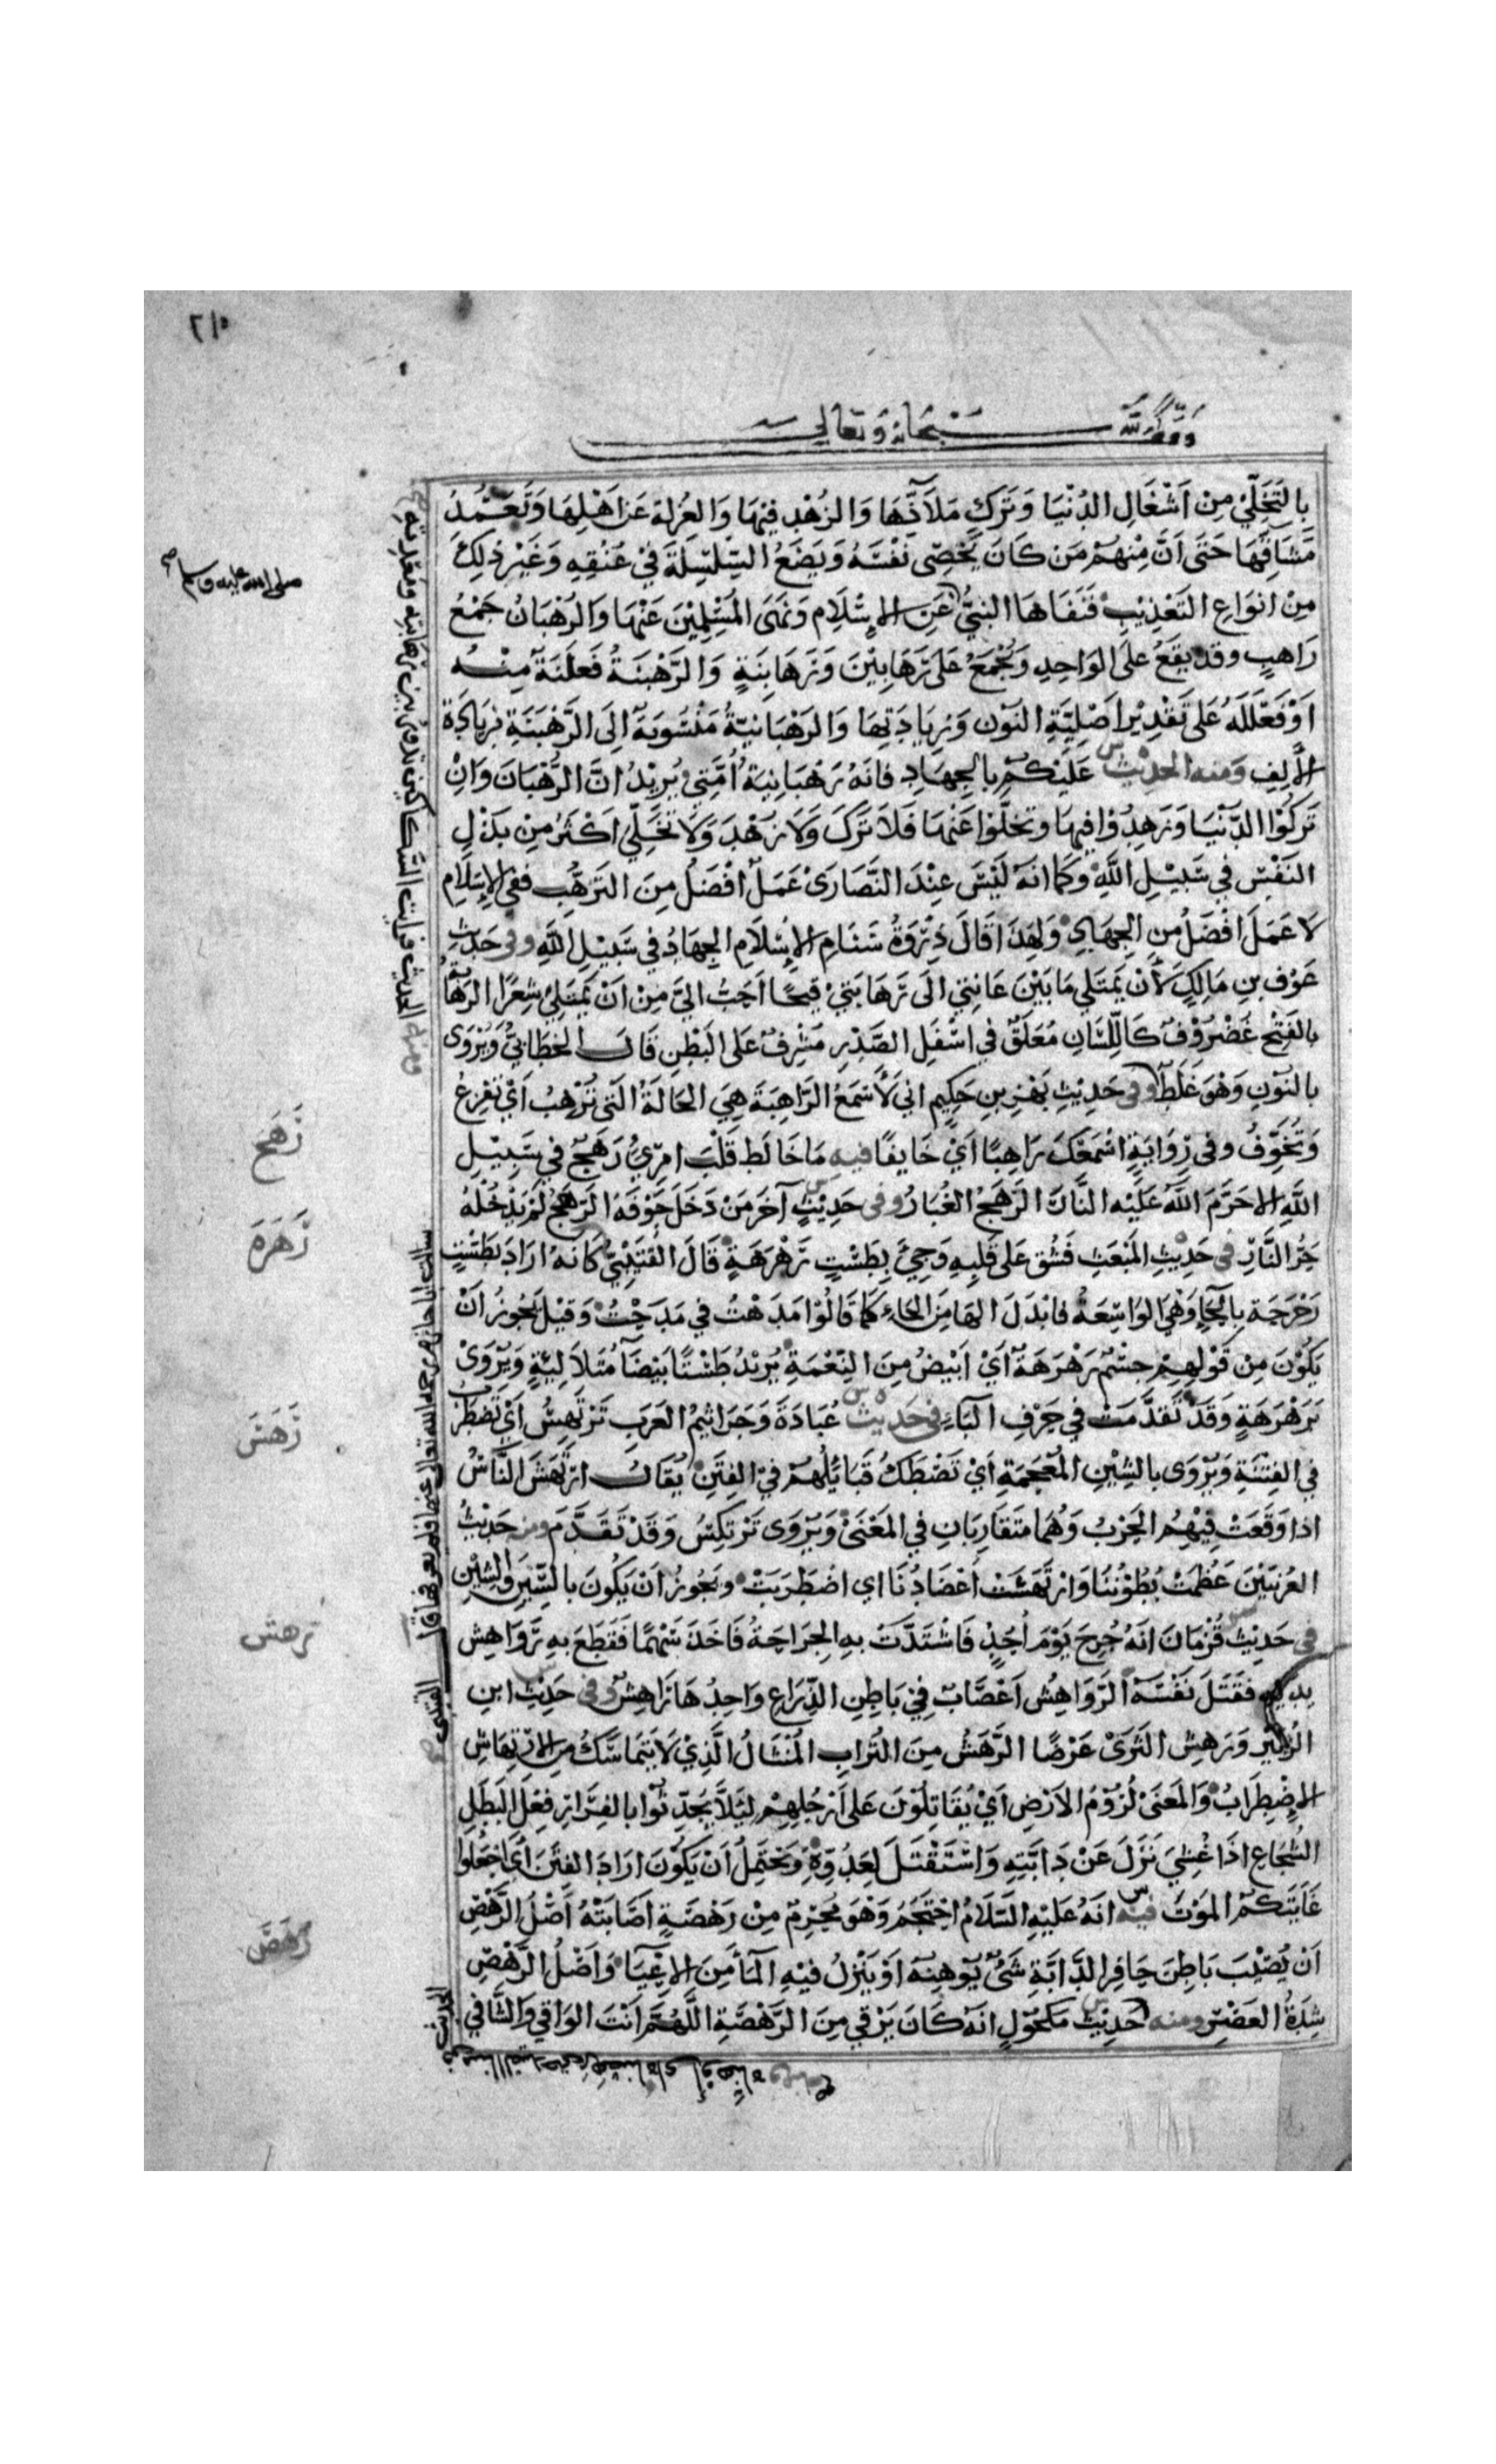 ٢١٥
وقف لله سبحانه وتعالى
بالتَّخَلِّيْ مِنْ اَشْغَالِ الدُنْيَا وَتَرَكِ مَلَاَذِّهَا وَالزُهْدِ فِيْهَا وَالعُزْلَةِ عَنْ اَهْلِهَا وَتَعَمُّدِ
مَشَاقِّهَا حَتَى اَنَّ مِنْهُمْ مَن كَانَ يَخْصِى نَفْسَهُ وَيَضَعُ السِّلْسِلَةَ فِيْ عُنُقِهِ وَغَيْرَ ذلِكَ
صلى الله عليه وسلم
مِنْ انْوَاعِ التَعْذِيْبِ فَنَفَاهَا النبيُّ عَنِ الإِسْلَامِ وَنَهَى المُسْلِمِيْنَ عَنْهَا وَالرُهْبَانُ جَمْعُ
رَاهِبٍ وقد يَقَعُ عَلَى الوَاحِدِ وَيُجْمَعُ عَلَى رَهَابِيْنَ وَرَهَابِنَةٍ وَالرَّهْبَنَةُ فَعْلَنَةٌ مِنْهُ
اَوْ فَعْلَلَةٌ عَلَى تَقْدِيْرِ اَصْلِيَّةِ النُوْن وَزِيَادَتِهَا وَالرَهْبَانِيّةُ مَنْسُوبَةٌ اِلَى الرَّهْبَنَةِ بزِيَادَة
الأَلِفِ وَمنه الحدِيْث عَلَيْكُمْ بالجِهَادِ فانهُ رَهْبَانِيَةُ اُمَّتِي يُرِيْدُ انَّ الرُّهْبَانَ وَانْ
تَرَكُوْا الدُّنْيَا وَزَهِدُوْا فِيْهَا وتخلَّوْا عَنْهَا فَلَا تَرْكَ وَلَا زُهْدَ وَلَا تَخَلِّيَ اَكْثَرُ مِنْ بَذْلِ
النَفْسِ فِي سَبِيْلِ اللَّهِ وَكَمَا انهُ لَيْسَ عِنْدَ النَّصَارَى عَمَلٌ افْضَلُ مِنَ التَرَهُّبِ ففي الإِسْلَامِ
لا عَمَلَ اَفْضَلُ مِن الجِهَادِ وَلِهَذَا قَالَ ذِرْوَةُ سَنَامِ الإِسْلَامِ الجِهَادُ فِي سَبِيْلِ اللَّهِ وفى حَدِيْثِ
عَوْفِ بنِ مَالِكٍ لَأَنْ يَمْتَلِي مَا بَيْنَ عَانَتِي الَى رَهَابَتِيْ قَيْحًا اَحَبُّ اليَّ مِنْ اَنْ يَمْتَلِيْ شِعْرًا الرَهَابَةُ
بالفَتْحِ غُضْرُوْفٌ كَاللِّسَانِ مُعَلَّقٌ في اسْفَلِ الصَّدْرِ مُشْرِفٌ عَلَى البَطْنِ قَالَ الخَطَابيُّ وَيُرْوَى
بالنوْنِ وَهُوَ غَلَطٌ وفى حَدِيْثِ بَهْزِ بنِ حَكِيم اني لَأَسْمَعُ الرَاهِبَةَ هِيَ الحَالَةُ الَّتى تُرْهِبُ اَيْ تُفْزِعُ
زَهج
وَتُخَوِّفُ وفي رِوَايَةٍ اسْمَعُكَ رَاهِبًا اَيْ خَايِفًا فيه مَا خَالَطَ قَلْبَ امرِئٍ رَهَجٌ في سَبِيْلِ
اللَّهِ الاحَرَّمَ اللَّهُ عَلَيْه النَّارَ الرَّهَجُ الغُبَارُ وفى حَدِيْثٍ آخَرَ مَنْ دَخَلَ جَوْفَهُ الرَهَجُ لَمْ يَدْخُلْهُ
رَهَرَه
حَرُّ النَّارِ في حَدِيْثِ المَبْعَثِ فَشُقَّ عَلَى قَلْبِهِ وَجِيْءَ بِطَسْتٍ رَهْرَهَةٍ قَالَ القُتَيْبِيُّ كَانهُ ارَادَ بطَسْتٍ
رَحْرَحَةٍ بالحَاءِ وَهْيَ الوَاسِعَهُ فابْدَلَ الهَا مِنَ الحَاءِ كَمَا قَالُوْا مَدَهْتُ فِي مَدَحْتُ وَقيْلَ يَجُوزُ اَنْ
يَكُوْنَ مِنْ قَوْلِهِمْ جِسْمٌ رَهْرَهَةٌ اَيْ اَبْيَضُ مِنَ النِّعْمَةِ يُرِيْدُ طَسْتًا بَيْضَا مُتَلَاَلِيَةٍ وَيُرْوَى
رَهَسَ
بَرَهْرَهَةٍ وَقَدْ تَقَدَّمَتْ في حَرْفِ البَاءِ في حَدِيْث عُبَادَةَ وَجَرَاثيْمُ العَرَبِ تَرْتَهِسُ اَيْ تَضطَرِبُ
في الفِتْنَةِ وَيُرْوَى بالشِيْنِ المُعْجَمَةِ اَيْ تَصْطَكُّ قَبَائِلُهُمْ فيْ الفِتَنِ يُقَالُ ارْتَهَسَ النَّاسُ
اذا وَقَعَتْ فِيْهِمُ الحَرْبُ وَهُمَا مُتَقَارِبَانِ في المَعْنَى وَيُرْوَى تَرْتكِسُ وَقَدْ تَقَدَّمَ ومنه حَدِيْثُ
العُرَنِيّيْنَ عَظُمَتْ بُطُوْنُنَا وَارْتَهَسَتْ اَعْضَادُنَا اي اضْطَرَبَتْ وَيَجُوزُ اَنْ يَكُونَ بالسِّيْنِ وَالشِيْنِ
رهش
في حَدِيْث قُزْمَانَ انَهُ جُرِحَ يَوْمَ اُحُدٍ فَاشْتَدَّتْ بهِ الجِرَاحَةُ فَاخَذَ سَهْمًا فَقَطَعَ بهِ رَوَاهِشَ
يدَيْهِ فَقَتَلَ نَفْسَهُ الرَّوَاهِشُ اَعْصَابٌ فِيْ بَاطِنِ الذِّرَاعِ وَاحِدُهَا رَاهِشٌ وفى حَدِيْث ابنِ
الزُبَيْرِ وَرَهِيْشُ الثَرَى عَرْضًا الرَّهِيْشُ مِنَ التُرَابِ المُنْثَالُ الَّذِيْ لَا يَتَمَاسَكُ مِنَ الارْتِهَاشِ
الإِضْطِرَابُ وَالمَعْنَى لُزُوْمُ الاَرْضِ اَيْ يُقَاتِلُوْنَ عَلَى اَرْجُلِهِمْ لِيَلَّا يُحَدِّثُوْا بالفِرَارِ فِعْلَ البَطَلِ
الشُجَاعِ اذَا غُشِيَ نَزَلَ عَنْ دَابَّتِهِ وَاسْتَقْتَلَ لِعَدُوِّهِ وَيَحْتَمِلُ اَنْ يَكُوْنَ ارَادَ الفِتَنَ اَيْ اجْعَلُوا
رَهَصَ
غَايَتَكُمُ المَوْتَ فيه انَهُ عَلَيْهِ السَّلَامُ احْتَجَمَ وَهُوَ مُحْرِمٌ مِنْ رَهْصَةٍ اَصَابَتْهُ اَصْلُ الرَّهْصِ
اَنْ يُصِيْبَ بَاطِنَ حَافِرِ الدَّابَةِ شَىْءٌ يُوْهِنُهُ اَوْ يَنْزِلُ فيْهِ المَاَ مِنَ الإِعْيَا وَاَصْلُ الرَّهْصِ
شِدَةُ العَصْرِ ومنه حَدِيْث مَكْحُوْلٍ انَهُ كَانَ يَرْقِي مِنَ الرَّهْصَةِ اللَّهُمَّ اَنْتَ الوَاقِي وَالشَّافِي